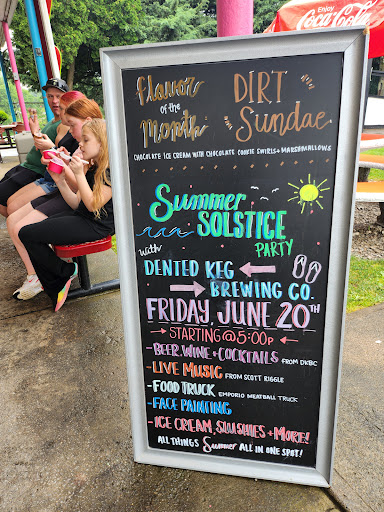 Enjoy
Coca-Cola
flavor
of the
month
DIRT
Sundae
CHOCOLATE ICE CREAM WITH CHOCOLATE COOKIE SWIRLS + MARSHMALLOWS
Summer
SOLSTICE
PARTY
with
DENTED KEG
BREWING CO.
FRIDAY, JUNE 20TH
STARTING @ 5:00P
-BEER, WINE + COCKTAILS FROM DKBC
-LIVE MUSIC FROM SCOTT RIGGLE
-FOOD TRUCK EMPORIO MEATBALL TRUCK
-FACE PAINTING
-ICE CREAM, SLUSHIES + MORE!
ALL THINGS Summer ALL IN ONE SPOT!